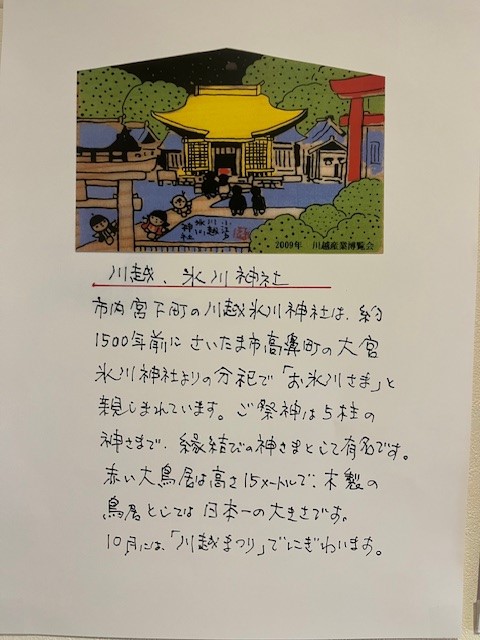 小江戸
川越
氷川
神社
2009年 川越産業博覧会
川越、氷川神社
市内宮下町の川越氷川神社は、約
1500年前にさいたま市高鼻町の大宮
氷川神社よりの分祀で「お氷川さま」と
親しまれています。ご祭神は5柱の
神さまで、縁結びの神さまとして有名です。
赤い大鳥居は高さ15メートルで、木製の
鳥居としては日本一の大きさです。
10月には、「川越まつり」でにぎわいます。